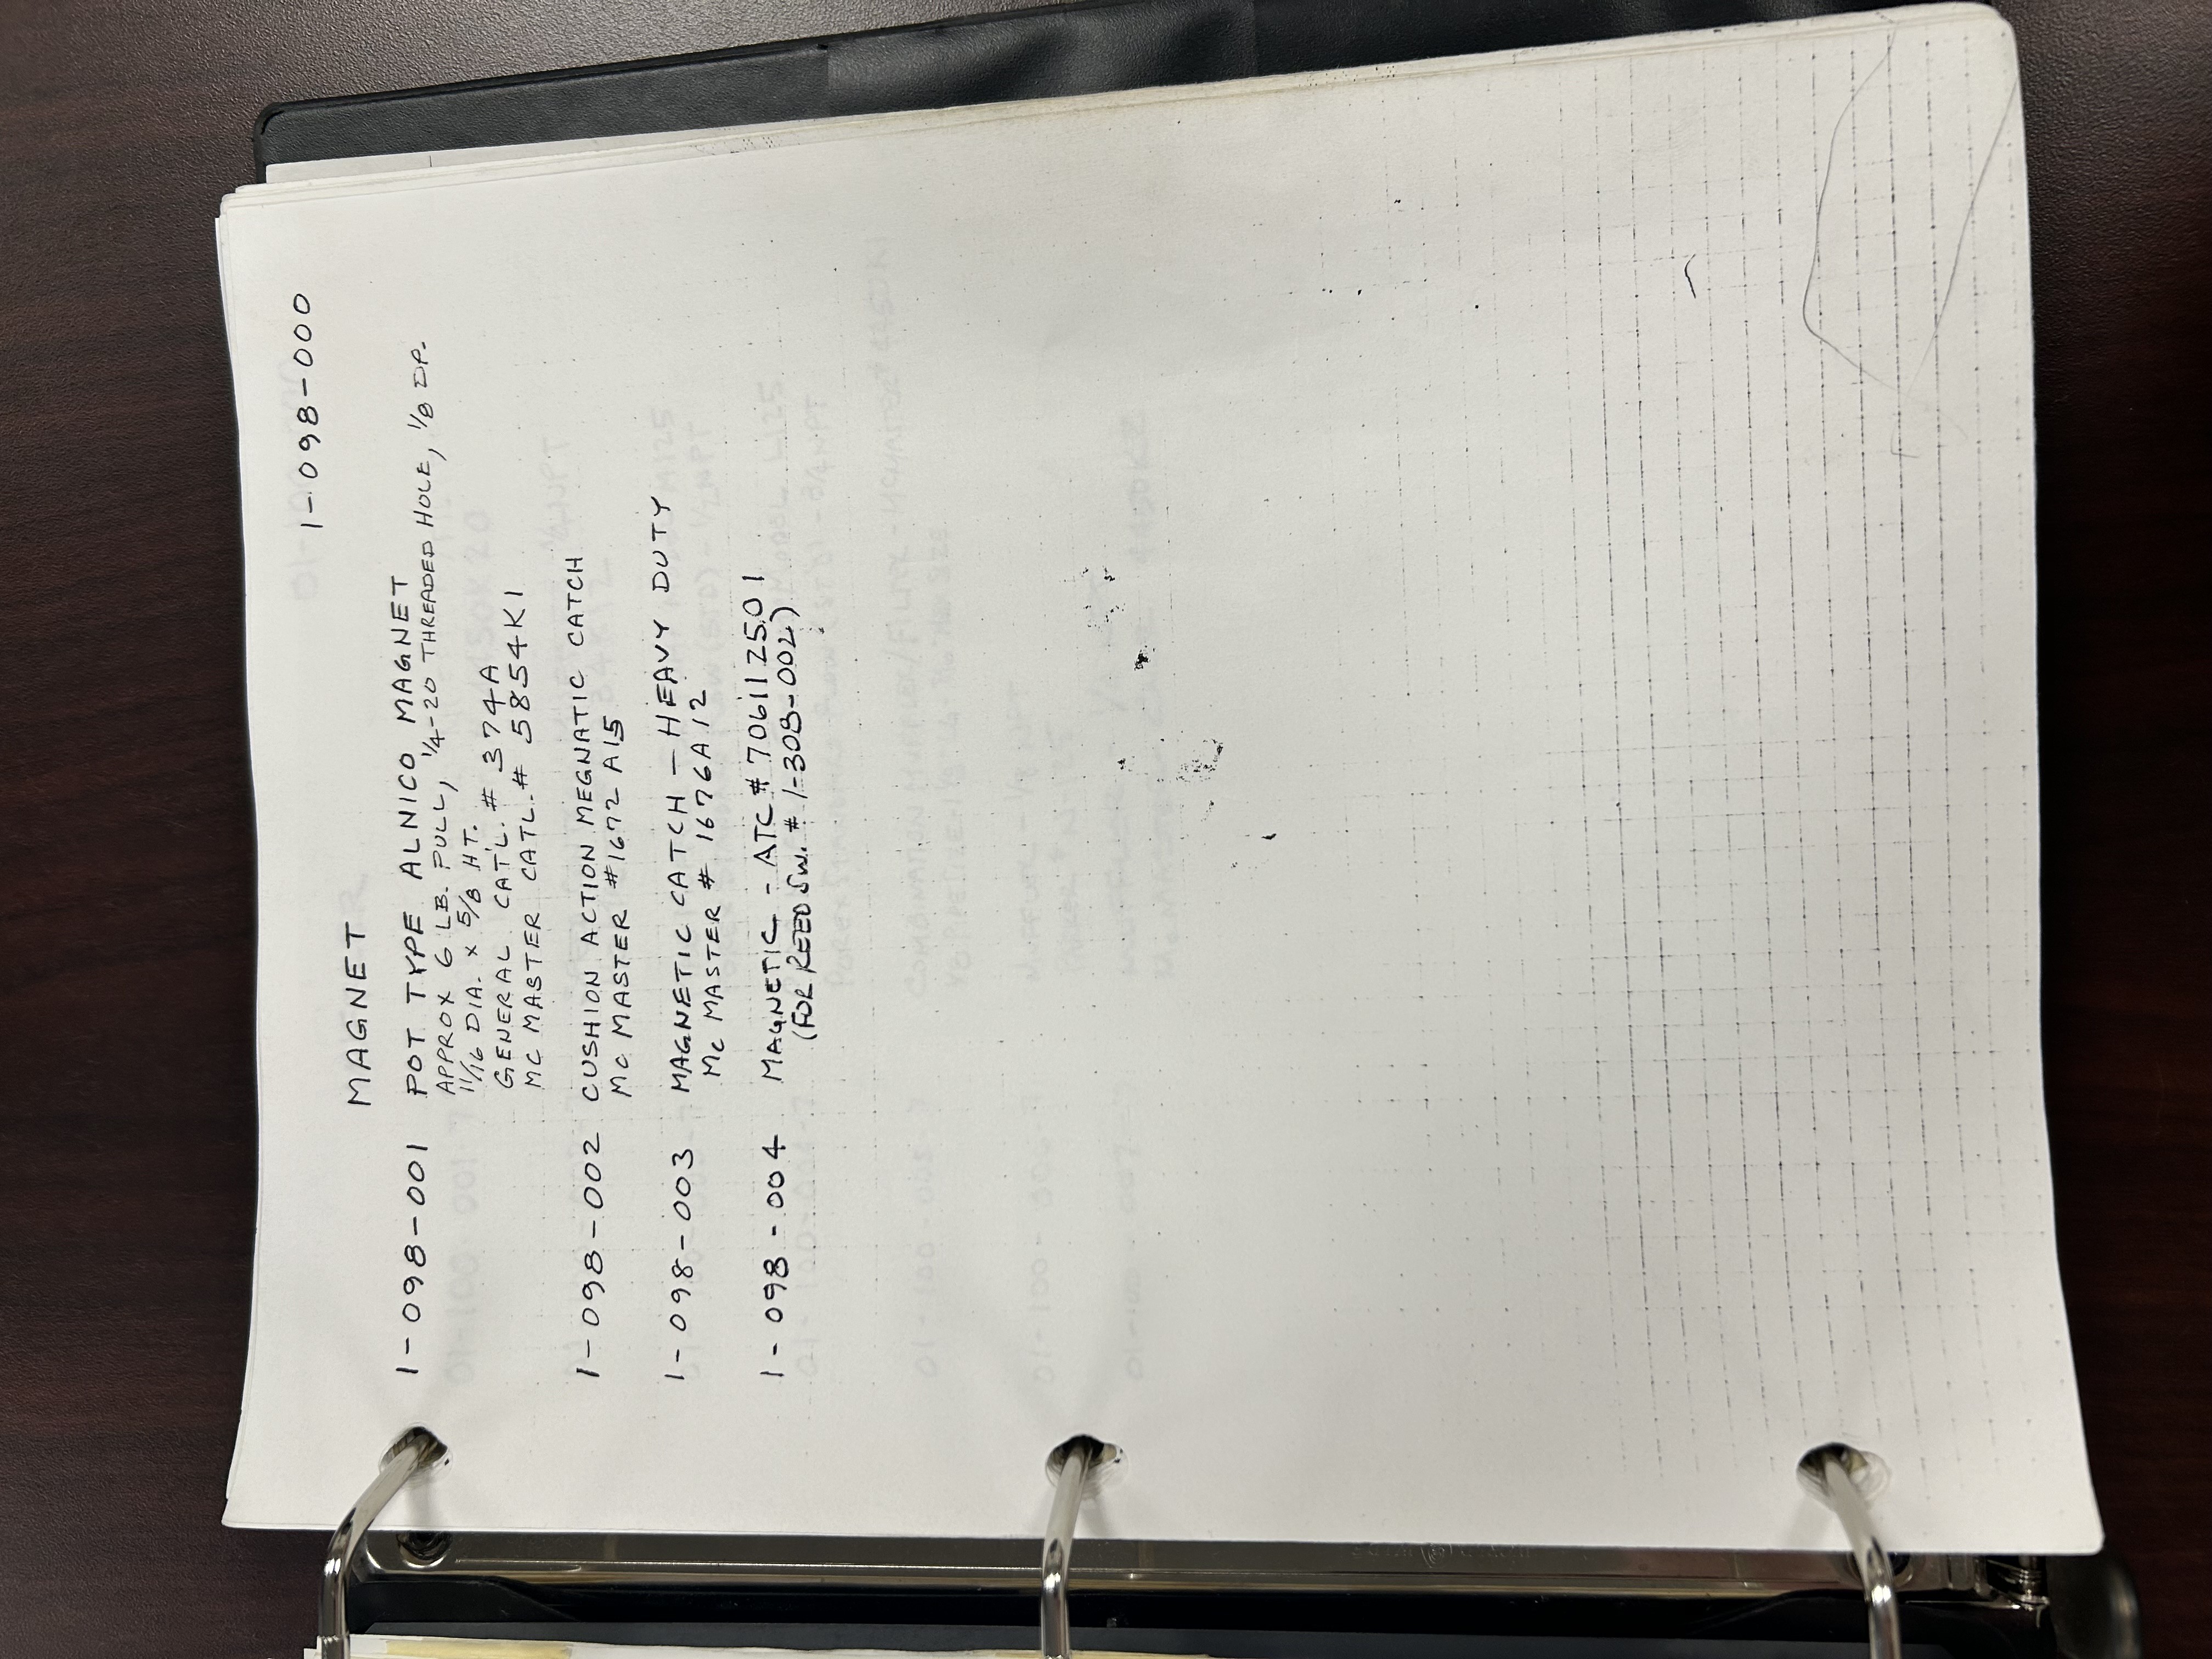 1-098-000
MAGNET
1-098-001 POT TYPE ALNICO MAGNET
APPROX 6 LB. PULL, 1/4-20 THREADED HOLE, 1/8 DP.
11/16 DIA. x 5/8 HT.
GENERAL CAT'L. # 374A
MC MASTER CATL. # 5854K1
1-098-002 CUSHION ACTION MEGNATIC CATCH
MC MASTER #1672 A15
1-098-003 MAGNETIC CATCH - HEAVY DUTY
Mc MASTER # 1676A12
1-098-004 MAGNETIC - ATC # 7061125.01
(FOR REED SW. # 1-308-002)